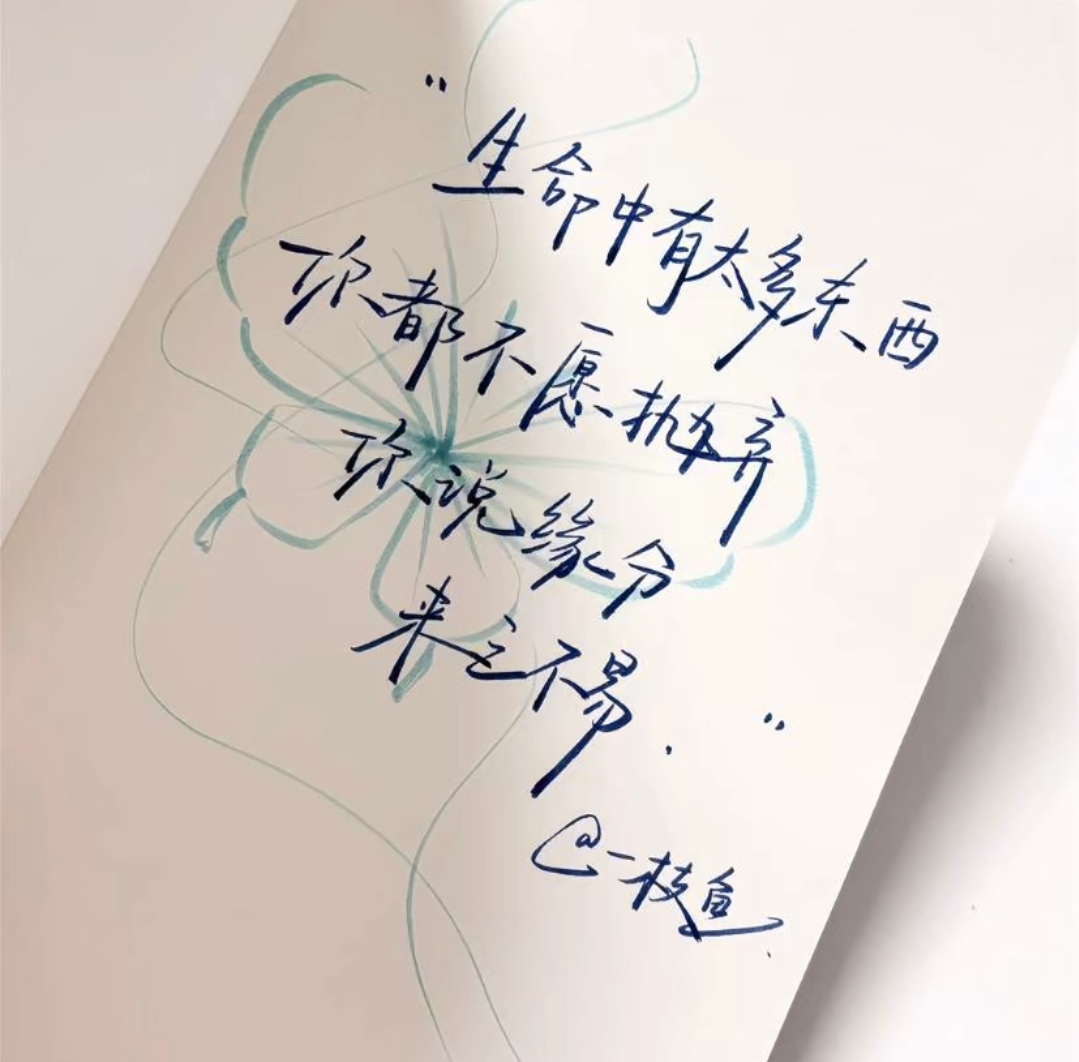 "生命中有太多东西
你都不愿抛弃
你说缘分
来之不易."
@一枝鱼.